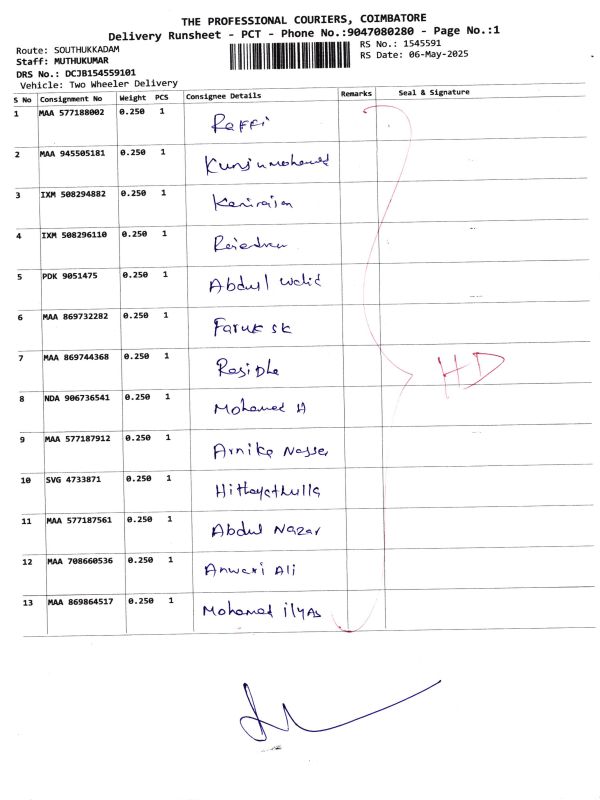 THE PROFESSIONAL COURIERS, COIMBATORE
Delivery Runsheet - PCT - Phone No.:9047080280 - Page No.:1
Route: SOUTHUKKADAM
RS No.: 1545591
Staff: MUTHUKUMAR
RS Date: 06-May-2025
DRS No.: DCJB154559101
Vehicle: Two Wheeler Delivery
S No Consignment No Weight PCS Consignee Details Remarks Seal & Signature
1 MAA 577188002 0.250 1 Raffi
2 MAA 945505181 0.250 1 Kunjumohamed
3 IXM 508294882 0.250 1
4 IXM 508296110 0.250 1
5 PDK 9051475 0.250 1 Abdul Walid
6 MAA 869732282 0.250 1 Faruk sk
7 MAA 869744368 0.250 1
HD
8 NDA 906736541 0.250 1 Mohamed H
9 MAA 577187912 0.250 1 Arnika Nasser
10 SVG 4733871 0.250 1 Hithayathulla
11 MAA 577187561 0.250 1 Abdul Nazar
12 MAA 708660536 0.250 1 Anwari Ali
13 MAA 869864517 0.250 1 Mohamed ilyAs